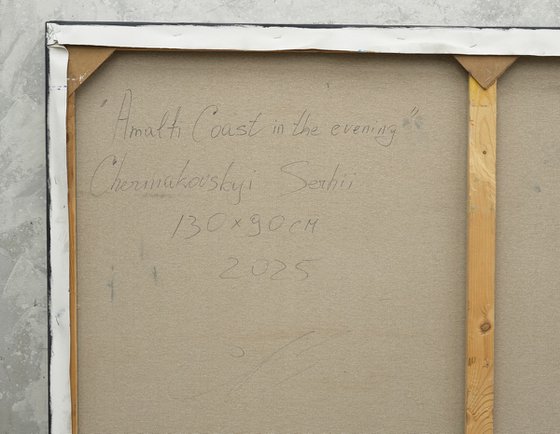 "Amalti Coast in the evening"
Chermakovskyi Serhii
130x90см
2025